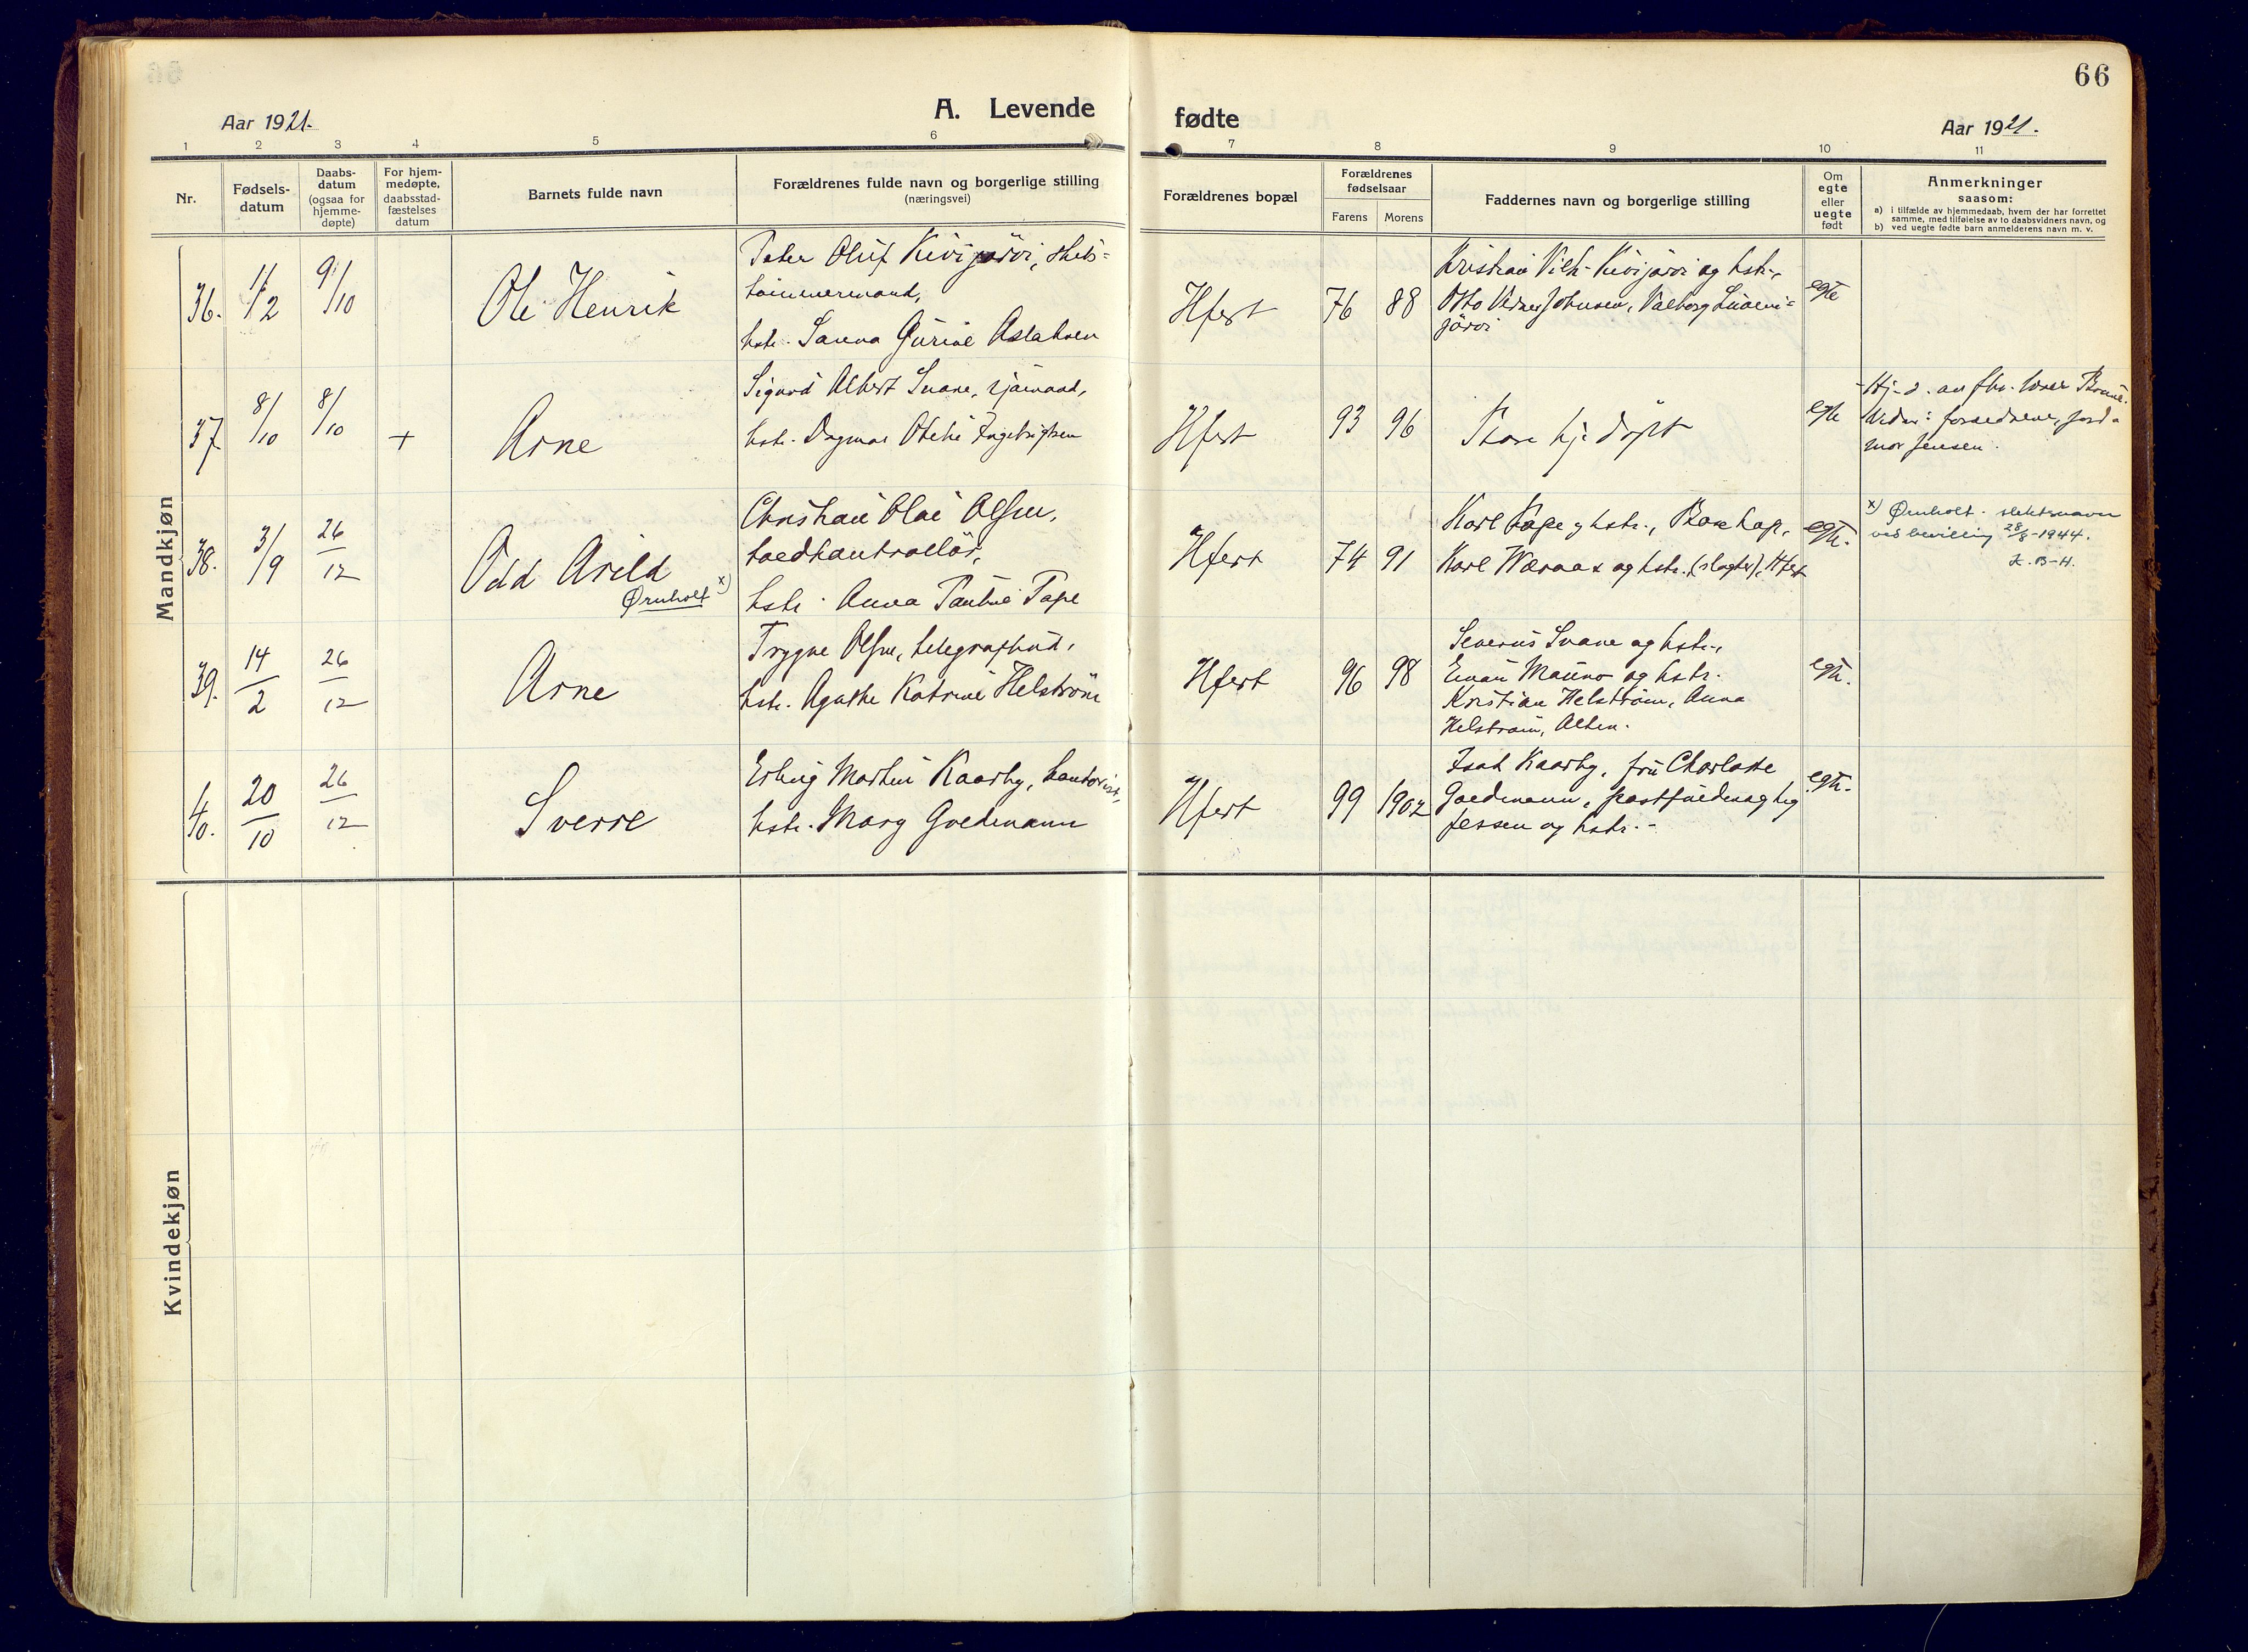 66
Aar 1921.
A. Levende fødte
Aar 1921.
1 2 3 4 5 6 7 8 9 10 11
Nr.
Fødsels-
datum
Daabs-
datum
(ogsaa for
hjemme-
døpte)
For hjem-
medøpte,
daabsstad-
fæstelses
datum
Barnets fulde navn
Forældrenes fulde navn og borgerlige stilling
(næringsvei)
Forældrenes bopæl
Forældrenes
fødselsaar
Farens Morens
Faddernes navn og borgerlige stilling
Om
egte
eller
uegte
født
Anmerkninger
saasom:
a) i tilfælde av hjemmedaab, hvem der har forrettet
samme, med tilføielse av to daabsvidners navn, og
b) ved uegte fødte barn anmelderens navn m. v.
Mandkjøn
36.
11/12
9/10
Ole Henrik
Peder Oluf Kivijærvi, skibs-
tømmermand,
hstr. Sanna Gurine Aslaksen
Hfest
76 88
Kristian Vilh. Kivijærvi og hstr.,
Otto Johnsen, Valborg Suomi-
järvi
egte
37
8/10
8/10
+
Arne
Sigurd Albert Svane, sjømand,
hstr. Dagmar Ingebrigtsen
Hfest
93 96
hj. døpt
egte
Hj. d. av lærer
Vidner: forældrene, jord-
mor Jensen.
38.
3/9
26/12
Odd Arild
Ørnholt x)
Christian Olai Olsen,
toldkontrollør,
hstr. Anna Pauline Pape
Hfest
74 91
Karl Pape og hstr., Bosekop,
Karl Wæraas og hstr. (slagter), Hfest
egte.
x) Ørnholt. slektsnavn
ved bevilling 28/8-1944.
K. B-H.
39.
14/2
26/12
Arne
Trygve Olsen, telegrafbud,
hstr. Agathe Katrine Helstrøm
Hfest
96 98
Severin Svane og hstr.,
Einar Mauno og hstr.
Kristian Helstrøm, Anna
Helstrøm, Alten.
egte.
40.
20/10
26/12
Sverre
Erling Martin Kaarby, kontorist,
hstr. Mary Goedmann
Hfest
99 1902
Isak Kaarby, fru Charlotte
Goedmann, postfuldmægtig
Jessen og hstr.-
egte.
Kvindekjøn